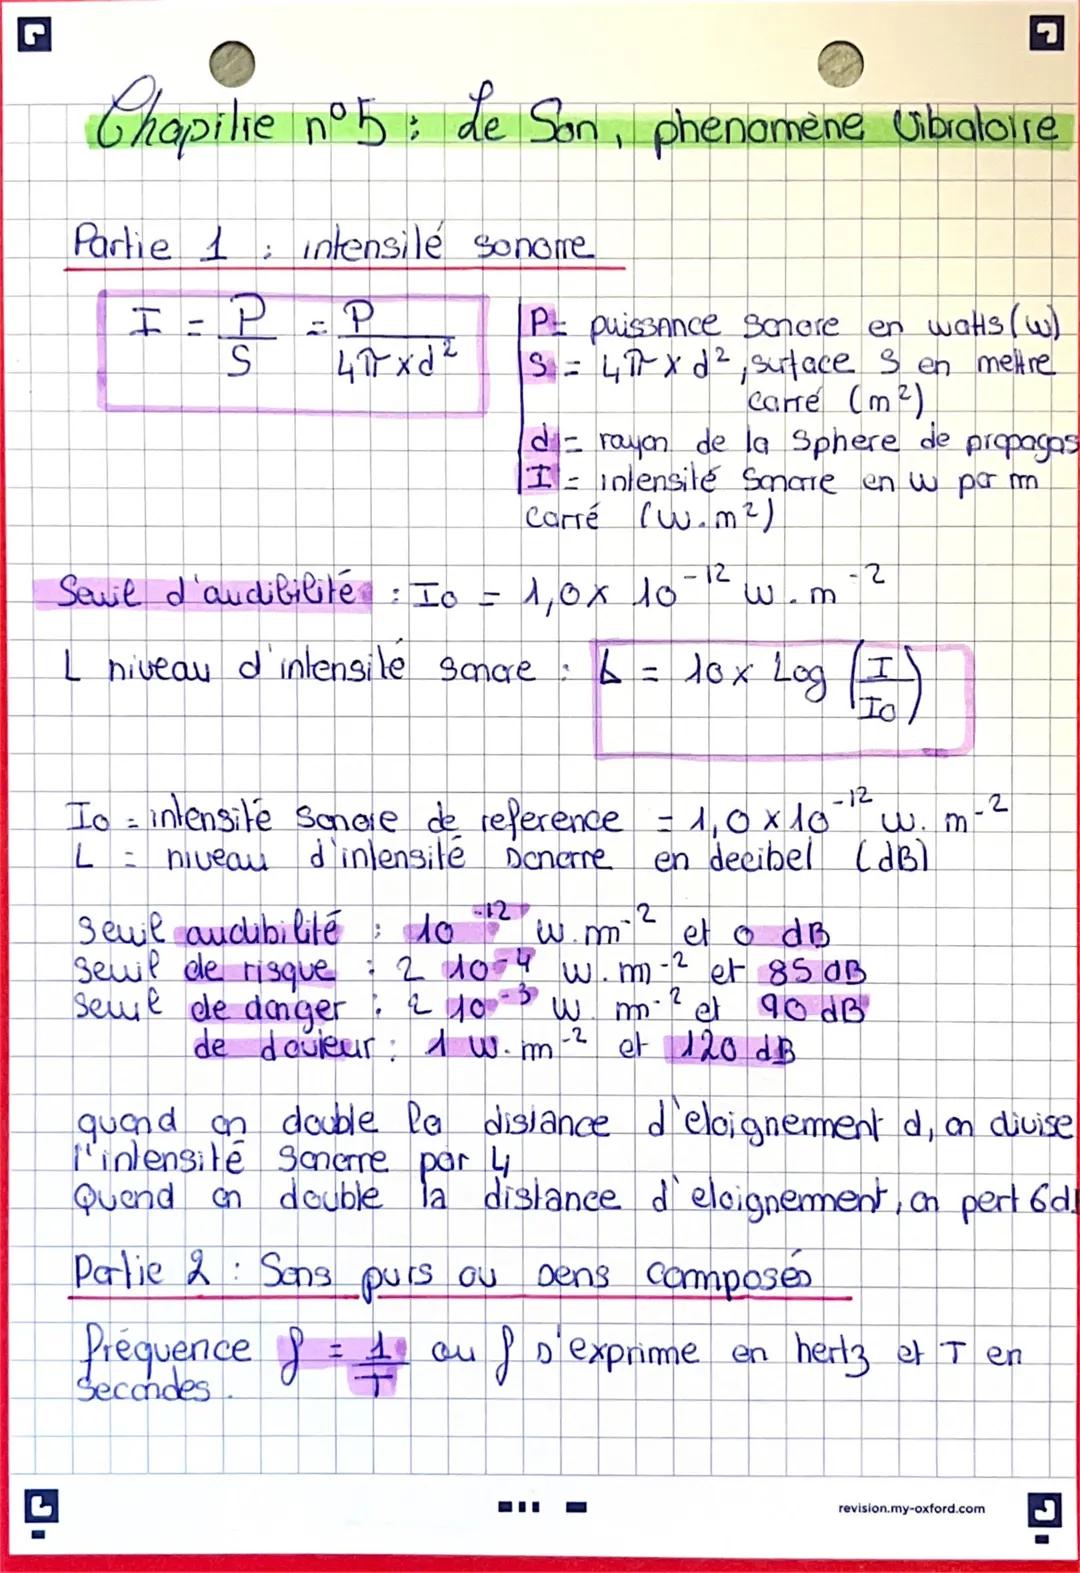 Chapitre n°5 : Le Son, phenomène Vibratoire
Partie 1 : intensité sonorre
I = P/S = P/(4π×d²)
P= puissance sonore en watts (w)
S = 4π × d², surface S en mettre
carré (m²)
d = rayon de la Sphere de propagas
I = intensité Sonore en w par m
carré (w.m²)
Seuil d'audibilité : I0 = 1,0 × 10⁻¹² w.m⁻²
L niveau d'intensité sonore : L = 10 × Log (I/I0)
I0 = intensité Sonore de reference = 1,0 × 10⁻¹² w.m⁻²
L = niveau d'intensité sonorre en decibel (dB)
Seuil audibilité : 10⁻¹² w.m⁻² et 0 dB
Seuil de risque : 2 10⁻⁴ w.m⁻² et 85 dB
Seuil de danger : 2 10⁻³ w m⁻² et 90 dB
de douleur : 1 w.m⁻² et 120 dB
quand on double la distance d'eloignement d, on divise
l'intensité sonorre par 4
Quand on double la distance d'eloignement, on pert 6d
Partie 2 : Sons purs ou sons composés
Fréquence f = 1/T ou f s'exprime en hertz et T en
Secondes.
revision.my-oxford.com